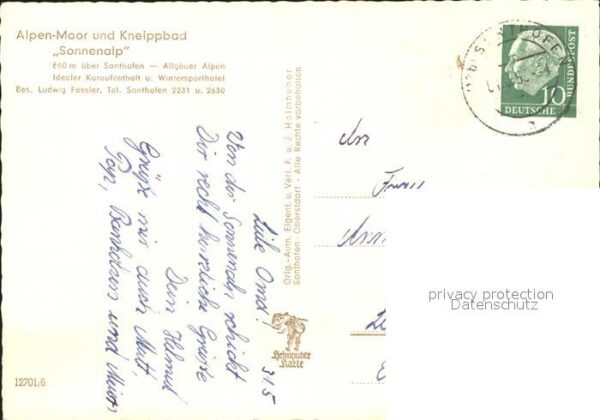 Alpen-Moor und Kneippbad
„Sonnenalp"
850 m über Sonthofen — Allgäuer Alpen
Idealer Kuraufenthalt u. Wintersporthotel
Bes. Ludwig Fassler, Tel. Sonthofen 2231 u. 2630
Orig.-Aufn. Eigent. u. Verl. F. u. J. Heimhuber
Sonthofen - Oberstdorf - Alle Rechte vorbehalten
Heimhuber
Karte
12701/6
SONTHOFEN
10
DEUTSCHE
BUNDESPOST
31.5
Liebe Omi!
Von der Sonnenalp schickt
Dir recht herzliche Grüsse
Dein Helmut
Grüße mir auch Mutt,
und
An
privacy protection
Datenschutz